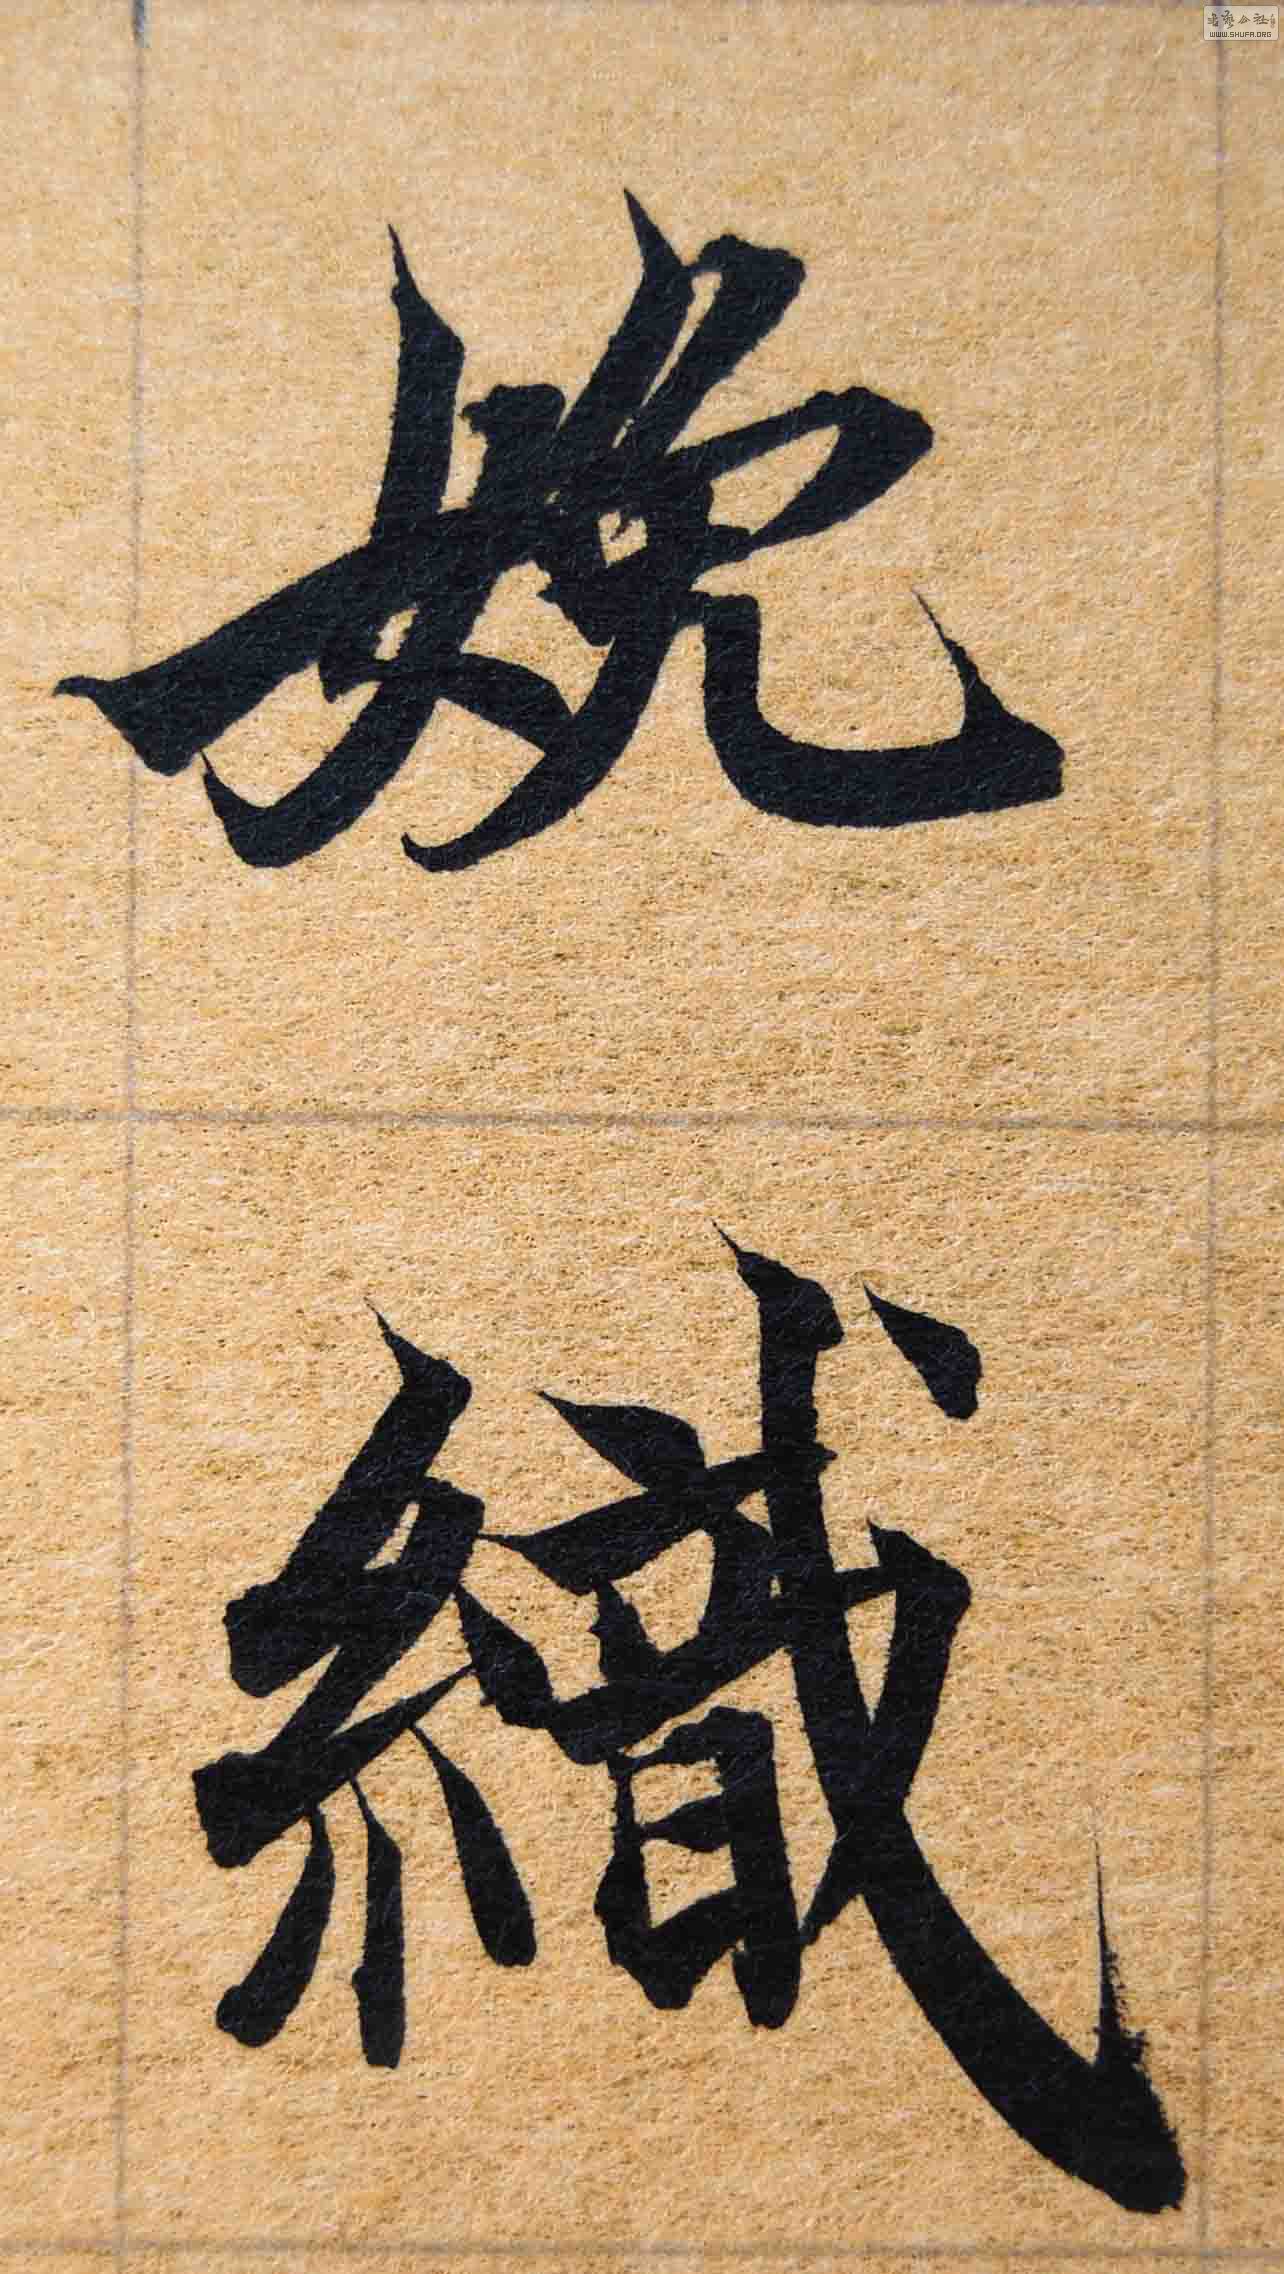 娩
織
书艺公社
WWW.SHUFA.ORG